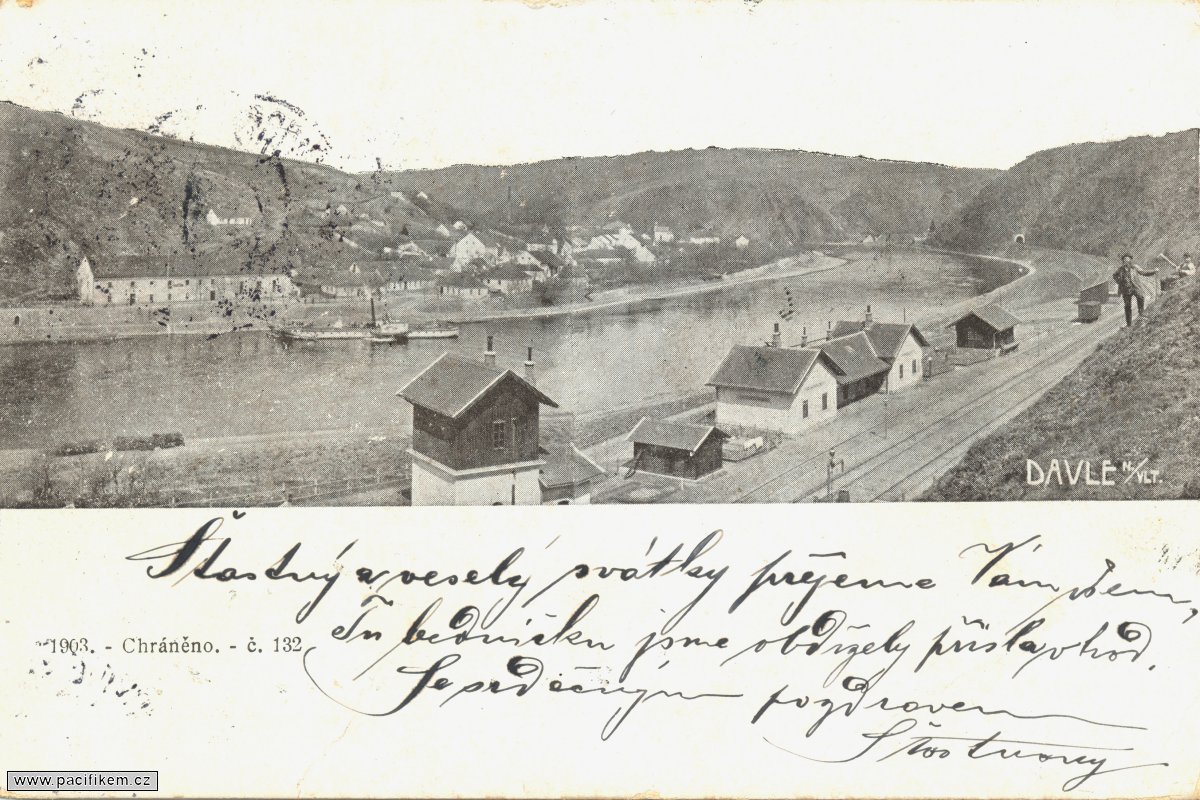 DAVLE N/VLT.
Šťastný a veselý svátky přejeme Vám všem,
Tu bedničku jsme obdržely přišla vhod.
1903. - Chráněno. - č. 132
Se srdečným pozdravem
www.pacifikem.cz